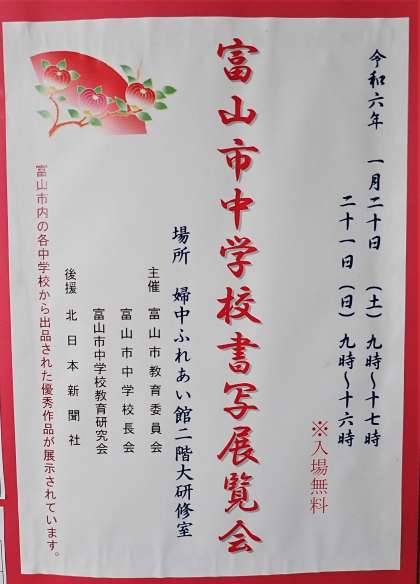 令和六年 一月二十日（土）九時～十七時
二十一日（日）九時～十六時
※入場無料
富山市中学校書写展覧会
場所 婦中ふれあい館二階大研修室
主催 富山市教育委員会
富山市中学校長会
富山市中学校教育研究会
後援 北日本新聞社
富山市内の各中学校から出品された優秀作品が展示されています。